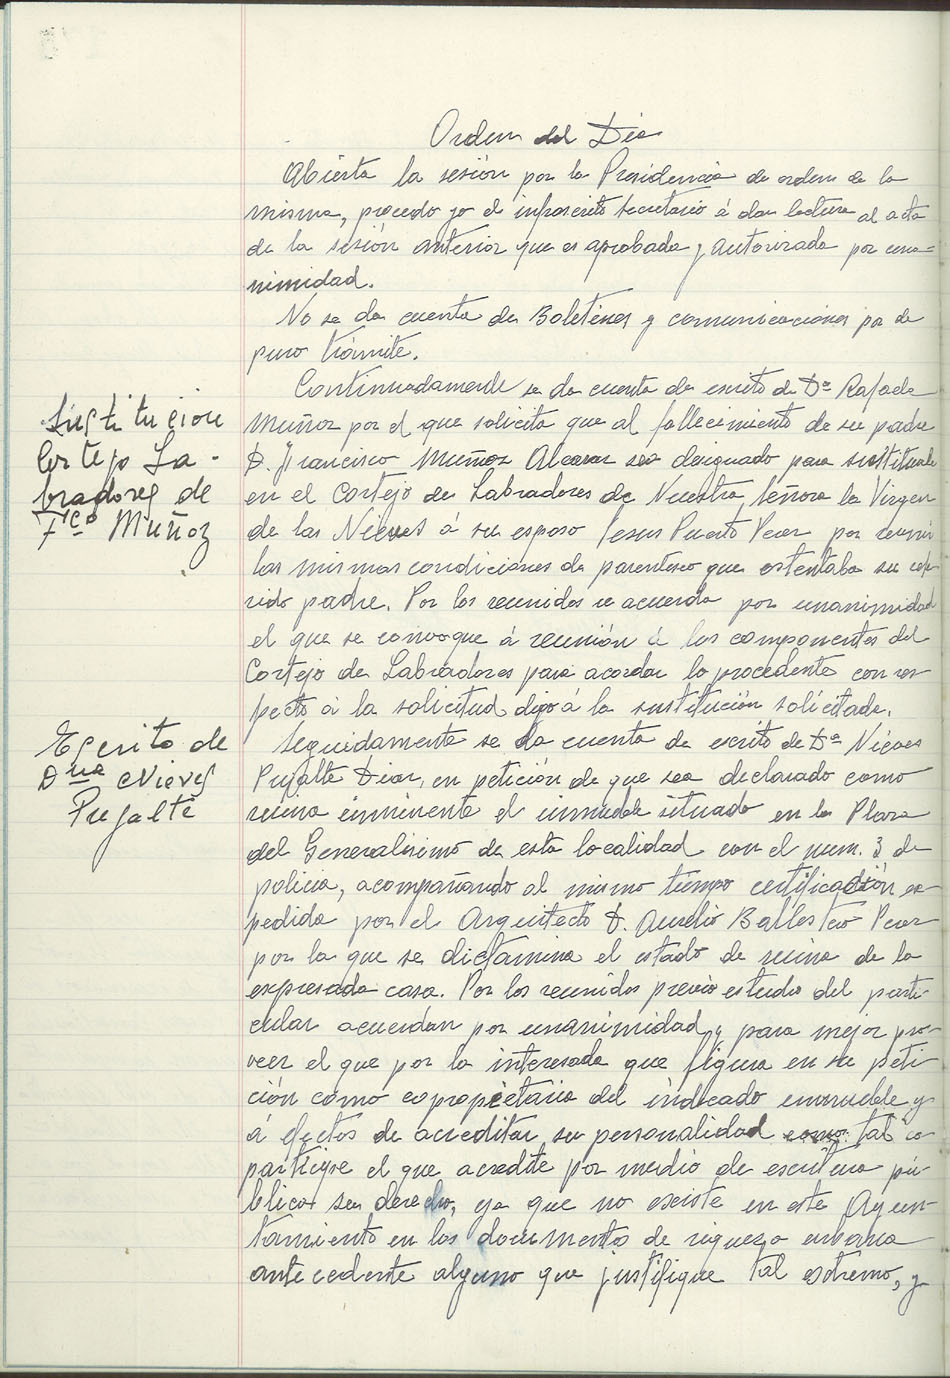 Orden del Día
Abierta la sesión por la Presidencia de orden de la
misma, procedo yo el infrascrito Secretario á dar lectura al acta
de la sesión anterior que es aprobada y autorizada por una=
nimidad.
No se da cuenta de Boletines y comunicaciones por de
puro trámite.
Continuadamente se da cuenta de escrito de Dª Rafaela
Muñoz por el que solicita que al fallecimiento de su padre
D. Francisco Muñoz Alcaraz sea designado para sustituirle
en el Cortejo de Labradores de Nuestra Señora la Virgen
de las Nieves á su esposo Jesus Puerto Perez por reunir
las mismas condiciones de parentesco que ostentaba su refe
rido padre. Por los reunidos se acuerda por unanimidad
el que se convoque á reunión á los componentes del
Cortejo de Labradores para acordar lo procedente con res-
pecto á la solicitud digo á la sustitución solicitada.
Sustitucion
Cortejo La-
bradores de
Fco Muñoz
Seguidamente se da cuenta de escrito de Dª Nieves
Pujalte Diaz, en petición de que sea declarado como
ruina inminente el inmueble situado en la Plaza
del Generalisimo de esta localidad con el num. 3 de
policia, acompañando al mismo tiempo certificación ex-
pedida por el Arquitecto D. Aurelio Ballesteo Perez
por la que se dictamina el estado de ruina de la
expresada casa. Por los reunidos previo estudio del parti-
cular acuerdan por unanimidad y para mejor pro-
veer el que por la interesada que figura en su peti-
ción como copropietaria del indicado inmueble y
á efectos de acreditar su personalidad como tal co
participe el que acredite por medio de escritura pú-
blica su derecho, ya que no existe en este Ayun-
tamiento en los documentos de riqueza urbana
antecedente alguno que justifique tal extremo, y
Escrito de
Dña Nieves
Pujalte